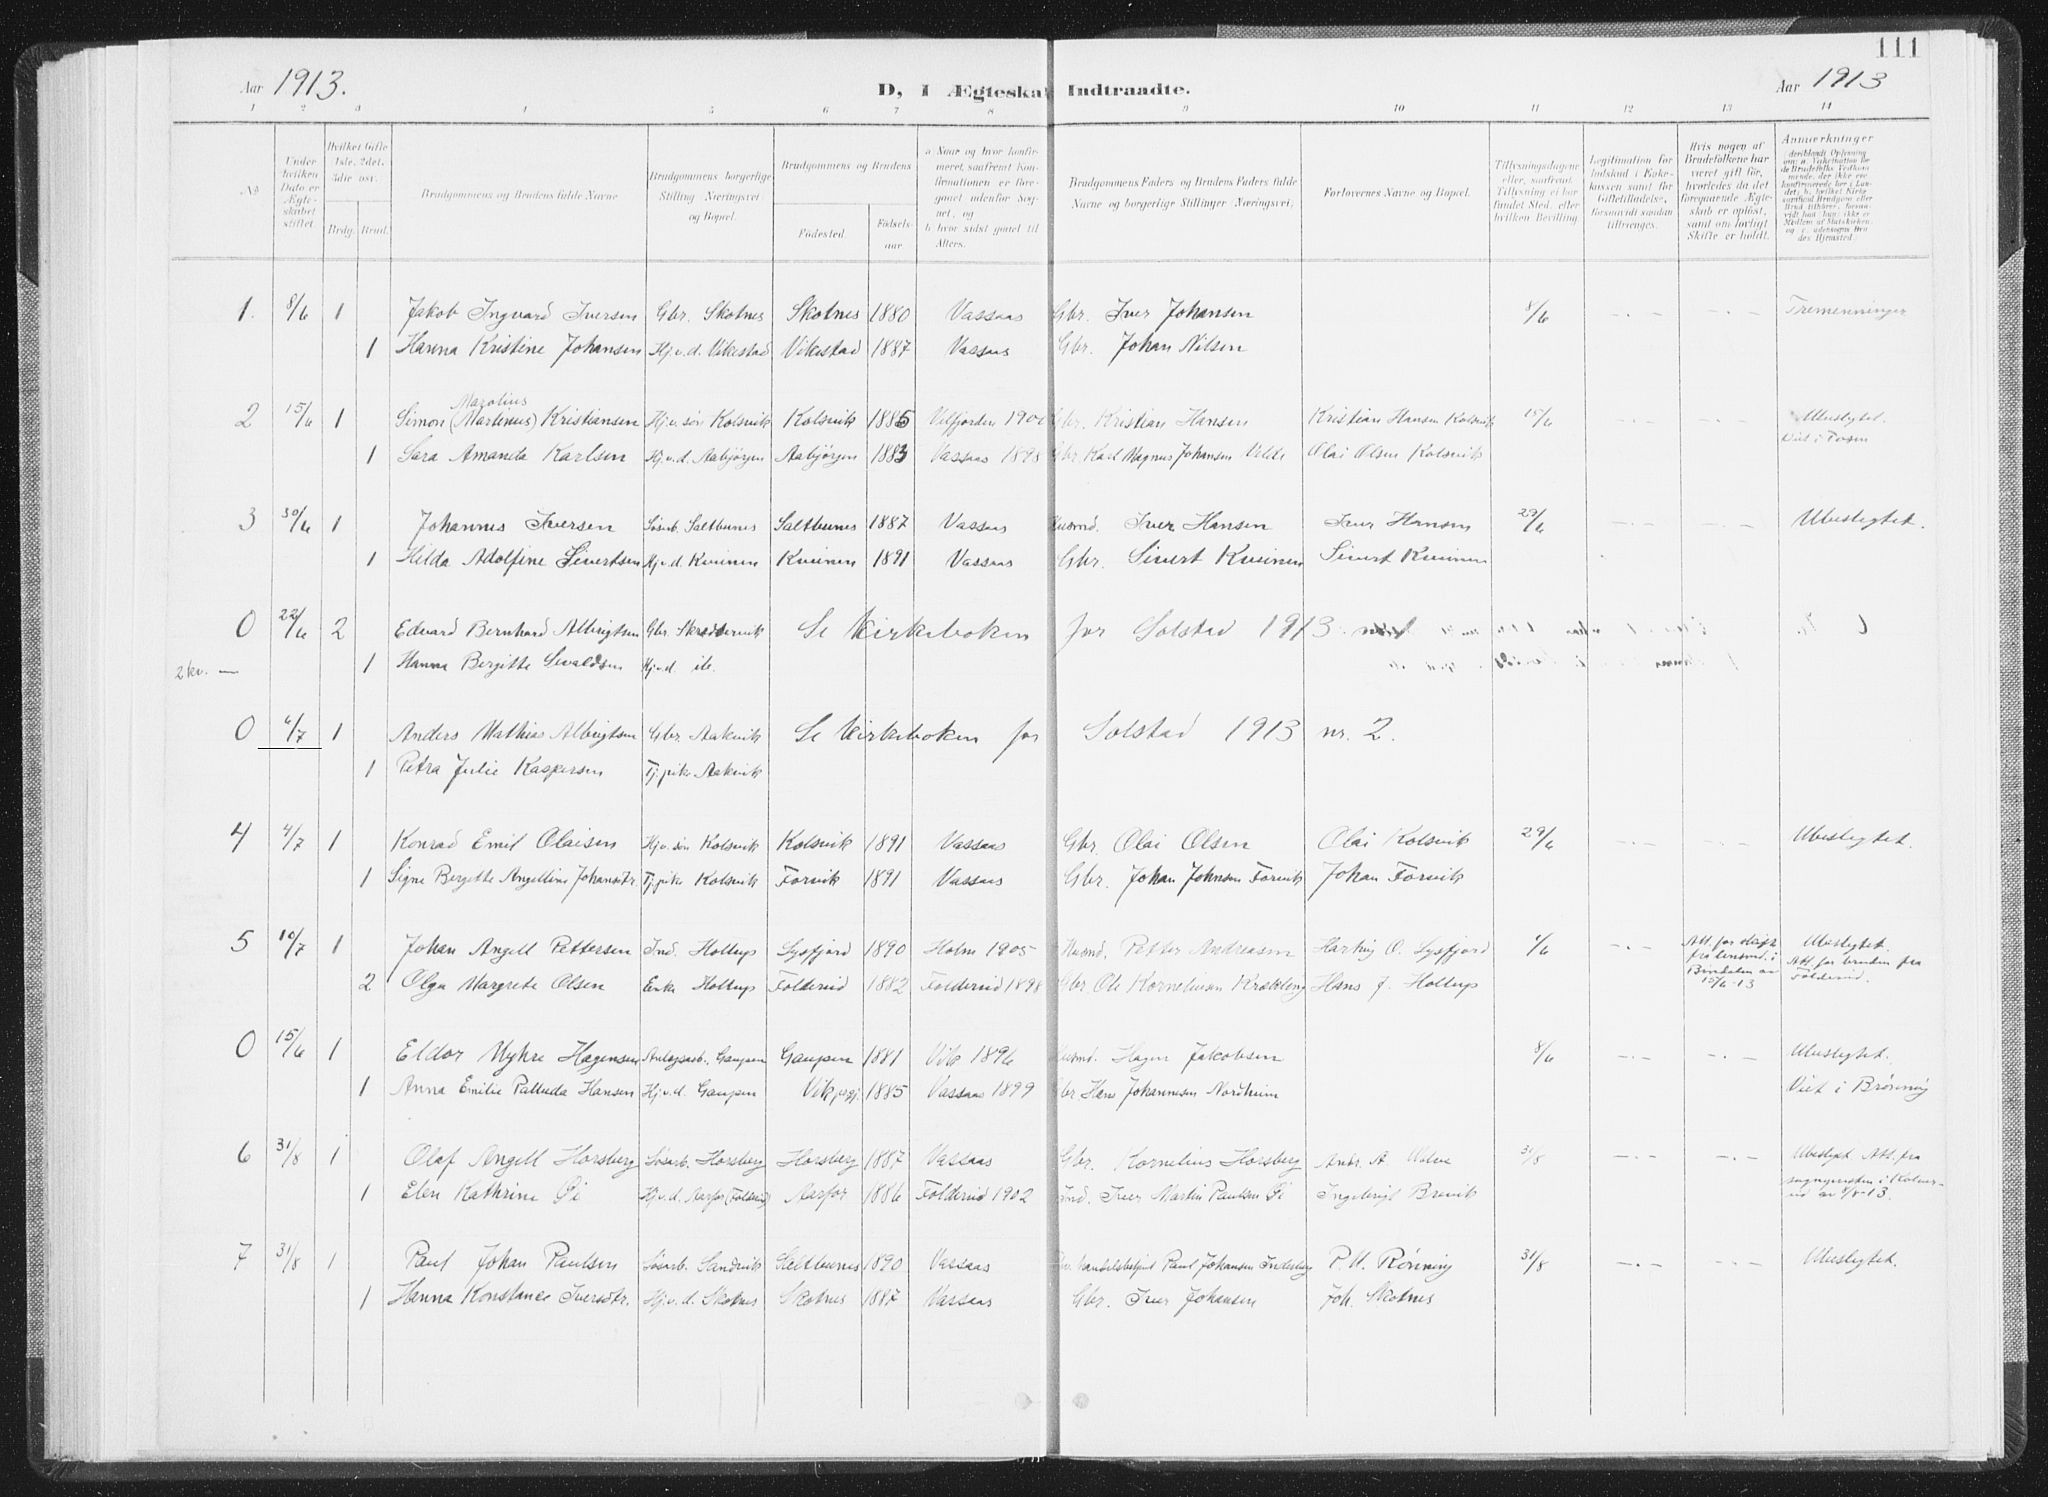 111
Aar 1913.
D, I Ægteskab Indtraadte.
Aar 1913
1 2 3 4 5 6 7 8 9 10 11 12 13 14
No
Under hvilken Dato er Ægteskabet stiftet.
Hvilket Gifte 1ste, 2det, 3die osv.
Brdg. Brud.
Brudgommens og Brudens fulde Navne
Brudgommens borgerlige Stilling Næringsvei og Bopæl.
Brudgommens og Brudens
Fødested. Fødselsaar.
a. Naar og hvor konfirmeret, saafremt Konfirmationen er foregaaet udenfor Sognet, og
b. hvor sidst gaaet til Alters.
Brudgommens Faders og Brudens Faders fulde Navne og borgerlige Stillinger Næringsvei.
Forlovernes Navne og Bopæl.
Tillysningsdagene eller, saafremt Tillysning ei har fundet Sted, efter hvilken Bevilling.
Legitimation for Indskud i Enkekassen samt for Giftetilladelse, forsaavidt saadan tiltrænges.
Hvis nogen af Brudefolkene har været gift før, hvorledes da det foregaaende Ægteskab er opløst, samt om lovligt Skifte er holdt.
Anmærkninger
1. 8/6 1 Jakob Ingvard Iversen Gbr. Skotnes Skotnes 1880 Vassaas Gbr. Iver Johansen 8/6 -.- -.- Tremenninger
1 Hanna Kristine Johansen Hj.v.d. Vikestad Vikestad 1887 Vassaas Gbr. Johan Nilsen
Marolius
2 15/6 1 Simon (Martinus) Kristiansen Hj.v. søn Kolsvik Kolsvik 1885 Velfjorden 190 Gbr. Kristian Hansen Kristian Hansen Kolsvik 15/6 -.- -.- Ubeslegtet.
1 Sara Amanda Karlsen Hj.v.d. Aabjørgen Aabjørgen 1883 Vassaas 1898 Gbr. Karl Magnus Johansen Olai Olsen Kolsvik
3 30/6 1 Johannes Iversen Løsarb. Saltbunes Saltbunes 1887 Vassaas Husmd. Iver Hansen Iver Hansen 29/6 -.- -.- Ubeslegtet.
1 Hilda Adolfine Sivertsen Hj.v.d. Kveinen Kveinen 1891 Vassaas Gbr. Sivert Kveinen Sivert Kveinen
0 22/6 2 Edvard Bernhard Albrigtsen Gbr. Skreddervik Se Kirkeboken for Solstad 1913
2 kv. — 1 Hanna Bergitte Sevaldsen Hj.v.d. ib.
0 6/7 1 Anders Mathias Albrigtsen Gbr Aakvik Se Kirkeboken for Solstad 1913 nr. 2.
1 Petra Julie Kaspersen Tj.pike Aakvik
4 4/7 1 Konrad Emil Olaisen Hj.v. søn Kolsvik Kolsvik 1891 Vassaas Gbr. Olai Olsen Olai Kolsvik 29/6 -.- -.- Ubeslegtet.
1 Signe Bergette Angelline Johansdtr. Tj.pike Kolsvik Forvik 1891 Vassaas Gbr. Johan Johnsen Forvik Johan Forvik
5 10/7 1 Johan Angell Pettersen Ind. Holtup Lysfjord 1890 Holm 1905 Husmd. Petter Andreasen Hartvig O. Lysfjord 1/6 -.- Att. for skifte fra lensmd. i Bindalen av 15/6-13 Ubeslegtet. Att. for bruden fra Foldereid.
2 Olga Margrete Olsen Enke Holtup Foldereid 1882 Foldereid 1898 Gbr. Ole Kornelius Hans J. Holtup
0 15/6 1 Eldor Myhre Hagensen Anlegsarb. Gaupen Gaupen 1881 Vik 1896 Husmd. Hagen Jakobsen 8/6 -.- -.- Ubeslegtet.
1 Anna Emilie Palleda Hansen Hj.v.d. Gaupen Vik 1885 Vassaas 1899 Gbr Hans Johannesen Nordheim Viet i Brønnøy
6 31/8 1 Olaf Angell Horsberg Løsarb. Horsberg Horsberg 1887 Vassaas Gbr. Kornelius Horsberg Andr. A. 31/8 -.- -.- Ubeslegt Att. fra sognepresten i Kolvereid av 8/8-13.
1 Elen Kathrine Øi Hj.v.d. Aarfor (Foldereid) Aarfor 1886 Foldereid 1902 Ind. Iver Martin Paulsen Øi Ingebrigt Brevik
7 31/8 1 Paul Johan Paulsen Løsarb. Sandvik Saltbunes 1890 Vassaas Paul Johansen P. M. Rønning 31/8 -.- -.- Ubeslegtet.
1 Hanna Konstance Iversdtr. Hj.v.d. Skotnes Skotnes 1887 Vassaas Gbr. Iver Johansen Joh. Skotnes